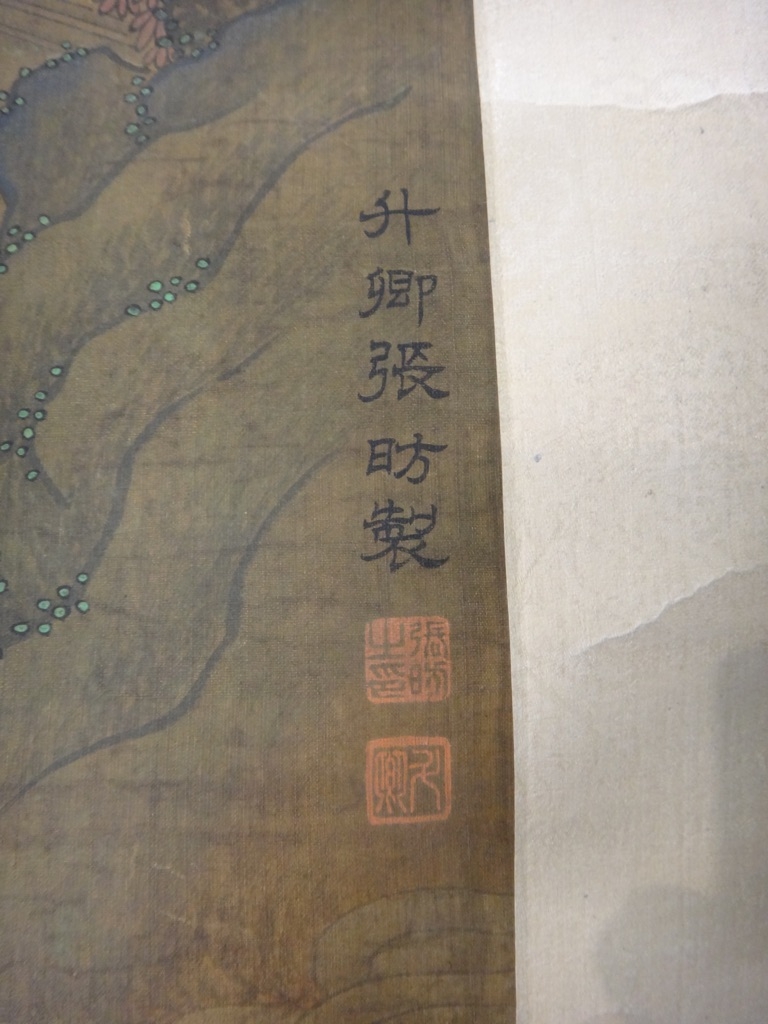 升卿張昉製
張昉之印
升卿